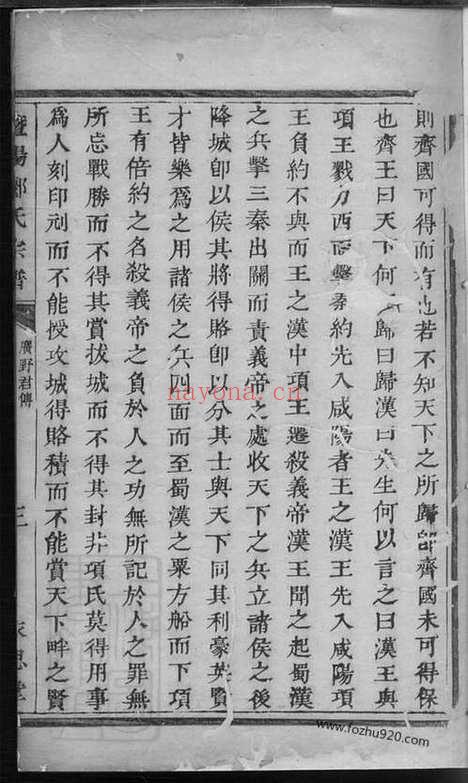 則齊國可得而有也若不知天下之所歸即齊國未可得保
也齊王曰天下何歸曰歸漢曰先生何以言之曰漢王與
項王戮力西面擊秦約先入咸陽者王之漢王先入咸陽項
王負約不與而王之漢中項王遷殺義帝漢王聞之起蜀漢
之兵擊三秦出關而責義帝之處收天下之兵立諸侯之後
降城卽以侯其將得賂卽以分其士與天下同其利豪英賢
才皆樂爲之用諸侯之兵四面而至蜀漢之粟方船而下項
王有倍約之名殺義帝之負於人之功無所記於人之罪無
所忘戰勝而不得其賞拔城而不得其封非項氏莫得用事
爲人刻印刓而不能授攻城得賂積而不能賞天下畔之賢
暨陽酈氏宗譜
廣野君傳
三
nayona.cn
www.fozhu920.com